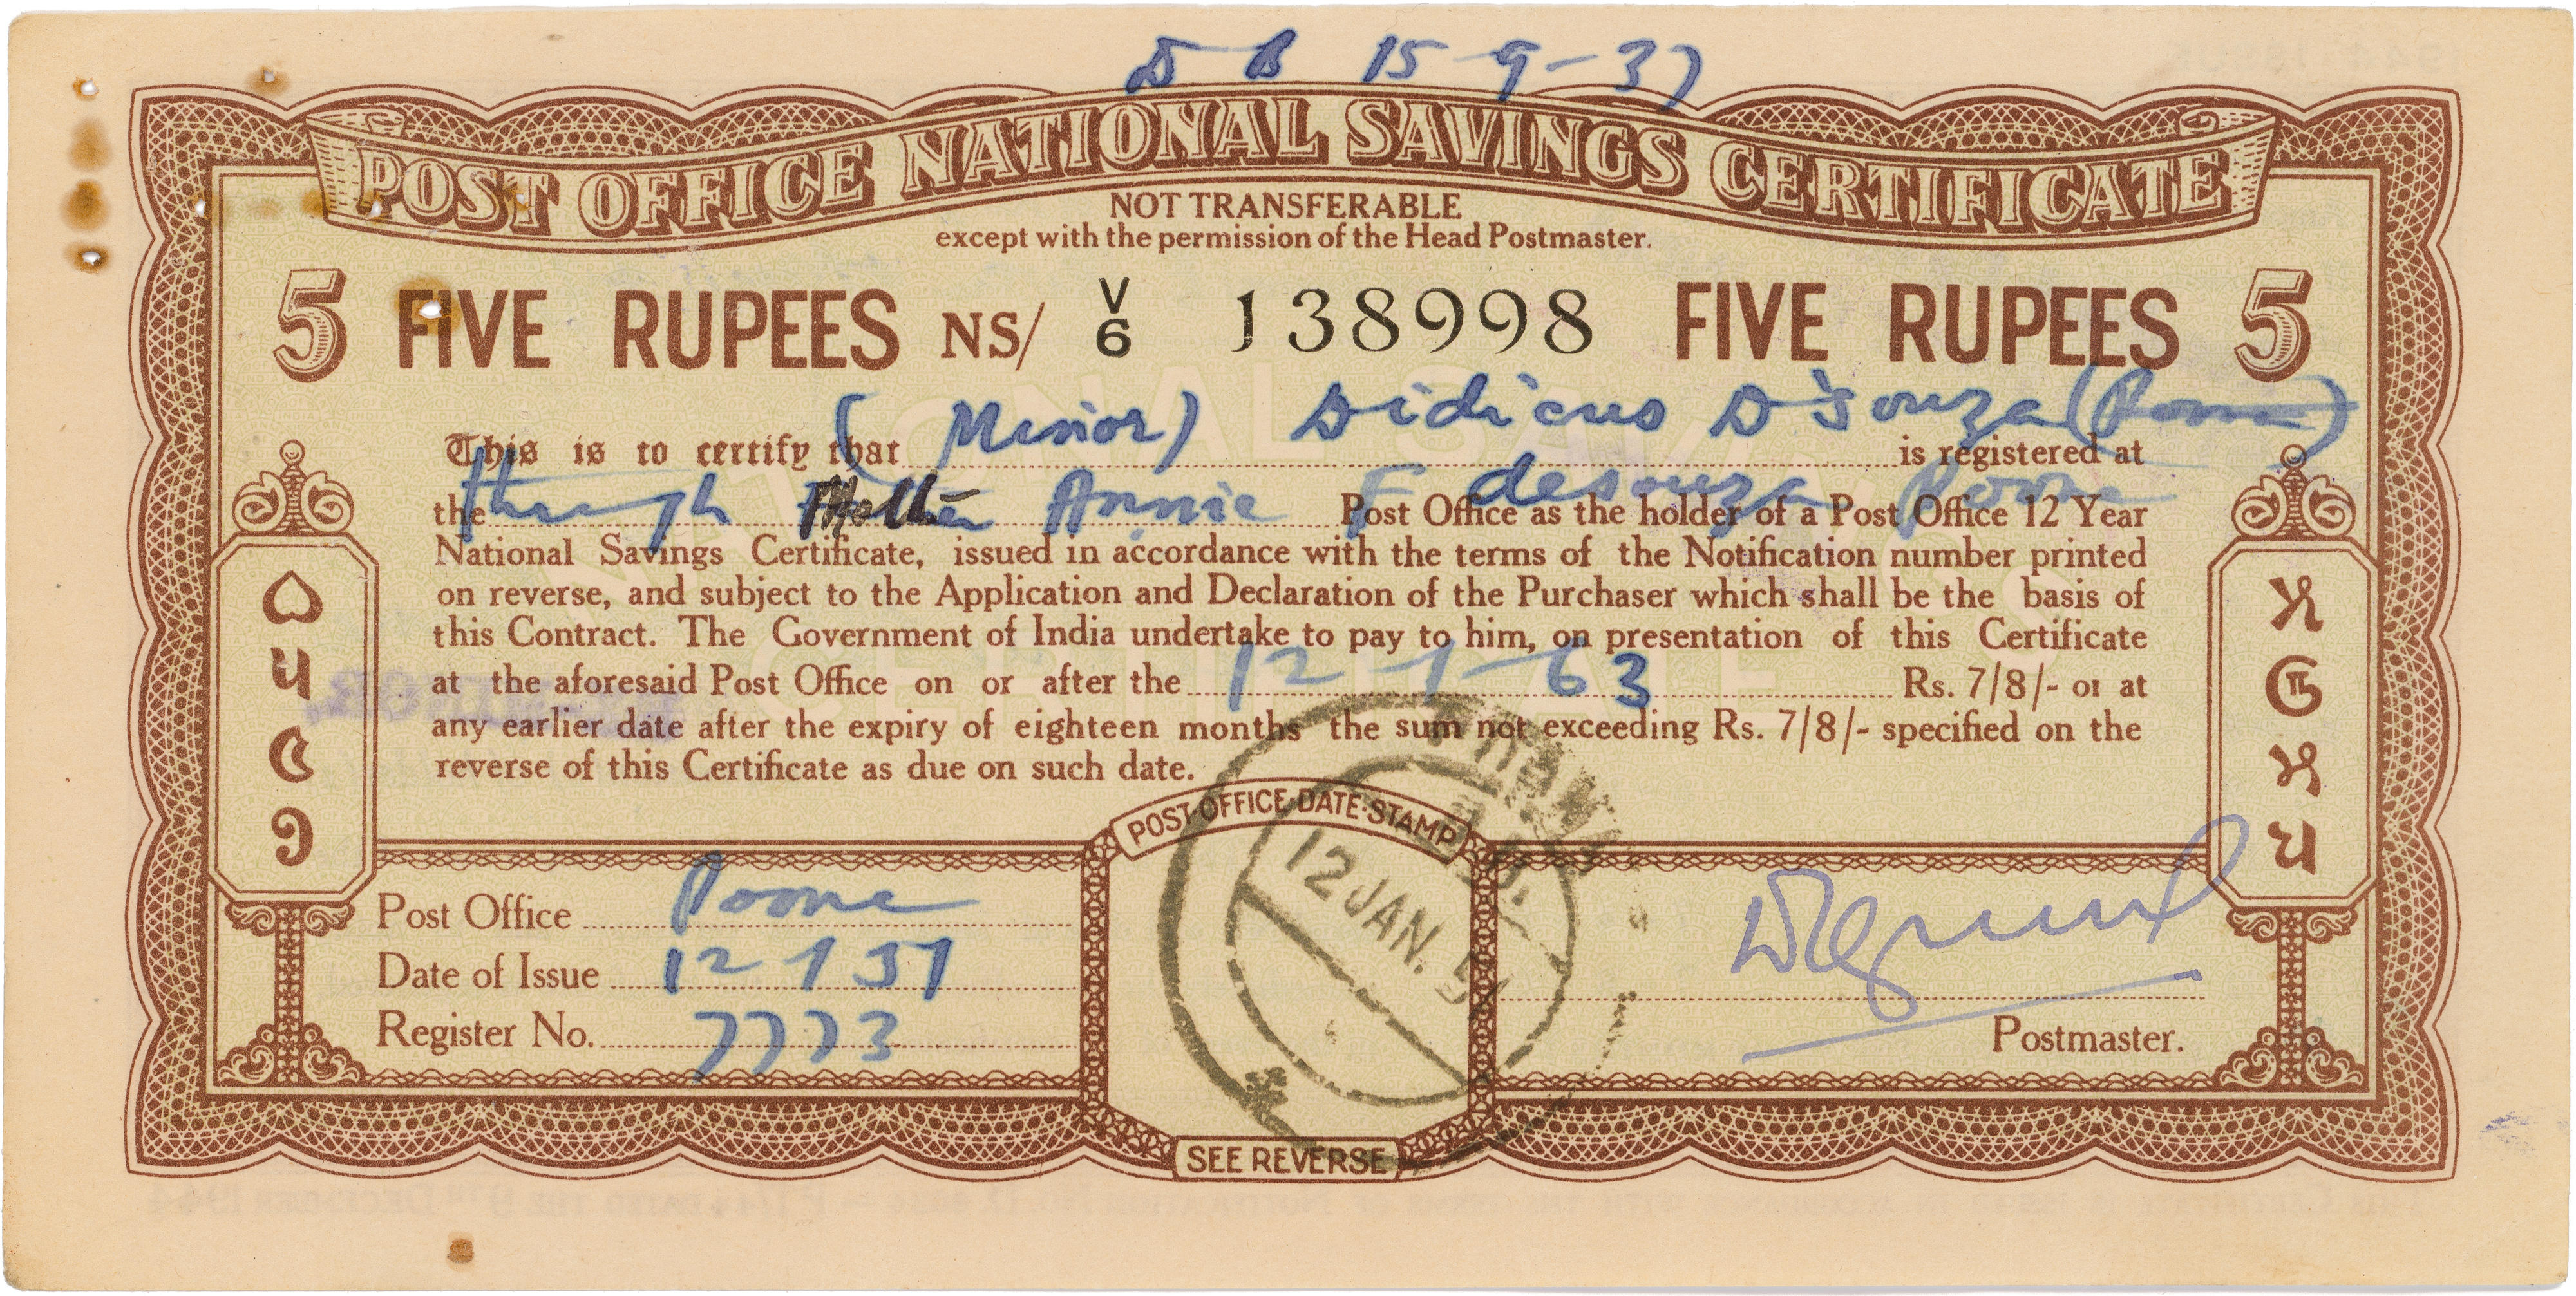 D B 15-9-37
POST OFFICE NATIONAL SAVINGS CERTIFICATE
NOT TRANSFERABLE
except with the permission of the Head Postmaster.
5 FIVE RUPEES NS/ V/6 138998 FIVE RUPEES 5
This is to certify that (Minor) Didicus D'Souza (Poona) is registered at
the through Mother Annie F desouza Poona Post Office as the holder of a Post Office 12 Year
National Savings Certificate, issued in accordance with the terms of the Notification number printed
on reverse, and subject to the Application and Declaration of the Purchaser which shall be the basis of
this Contract. The Government of India undertake to pay to him, on presentation of this Certificate
at the aforesaid Post Office on or after the 12-1-63 Rs. 7/8/- or at
any earlier date after the expiry of eighteen months the sum not exceeding Rs. 7/8/- specified on the
reverse of this Certificate as due on such date.
POST·OFFICE·DATE·STAMP
12 JAN. 51
Post Office Poona
Date of Issue 12 1 51
Register No. 7773
Postmaster.
SEE REVERSE